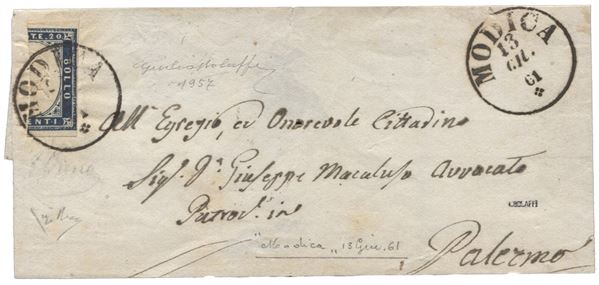 C.E. 20
BOLLO
ENTI
MODICA
MODICA
13
GIU.
61
Giulio Bolaffi
1957
All' Egregio, ed Onorevole Cittadino
Sig.r Dn Giuseppe Macaluso Avvocato
Patroc.e in
G.BOLAFFI
"Modica„ 13 Giu. 61
Palermo